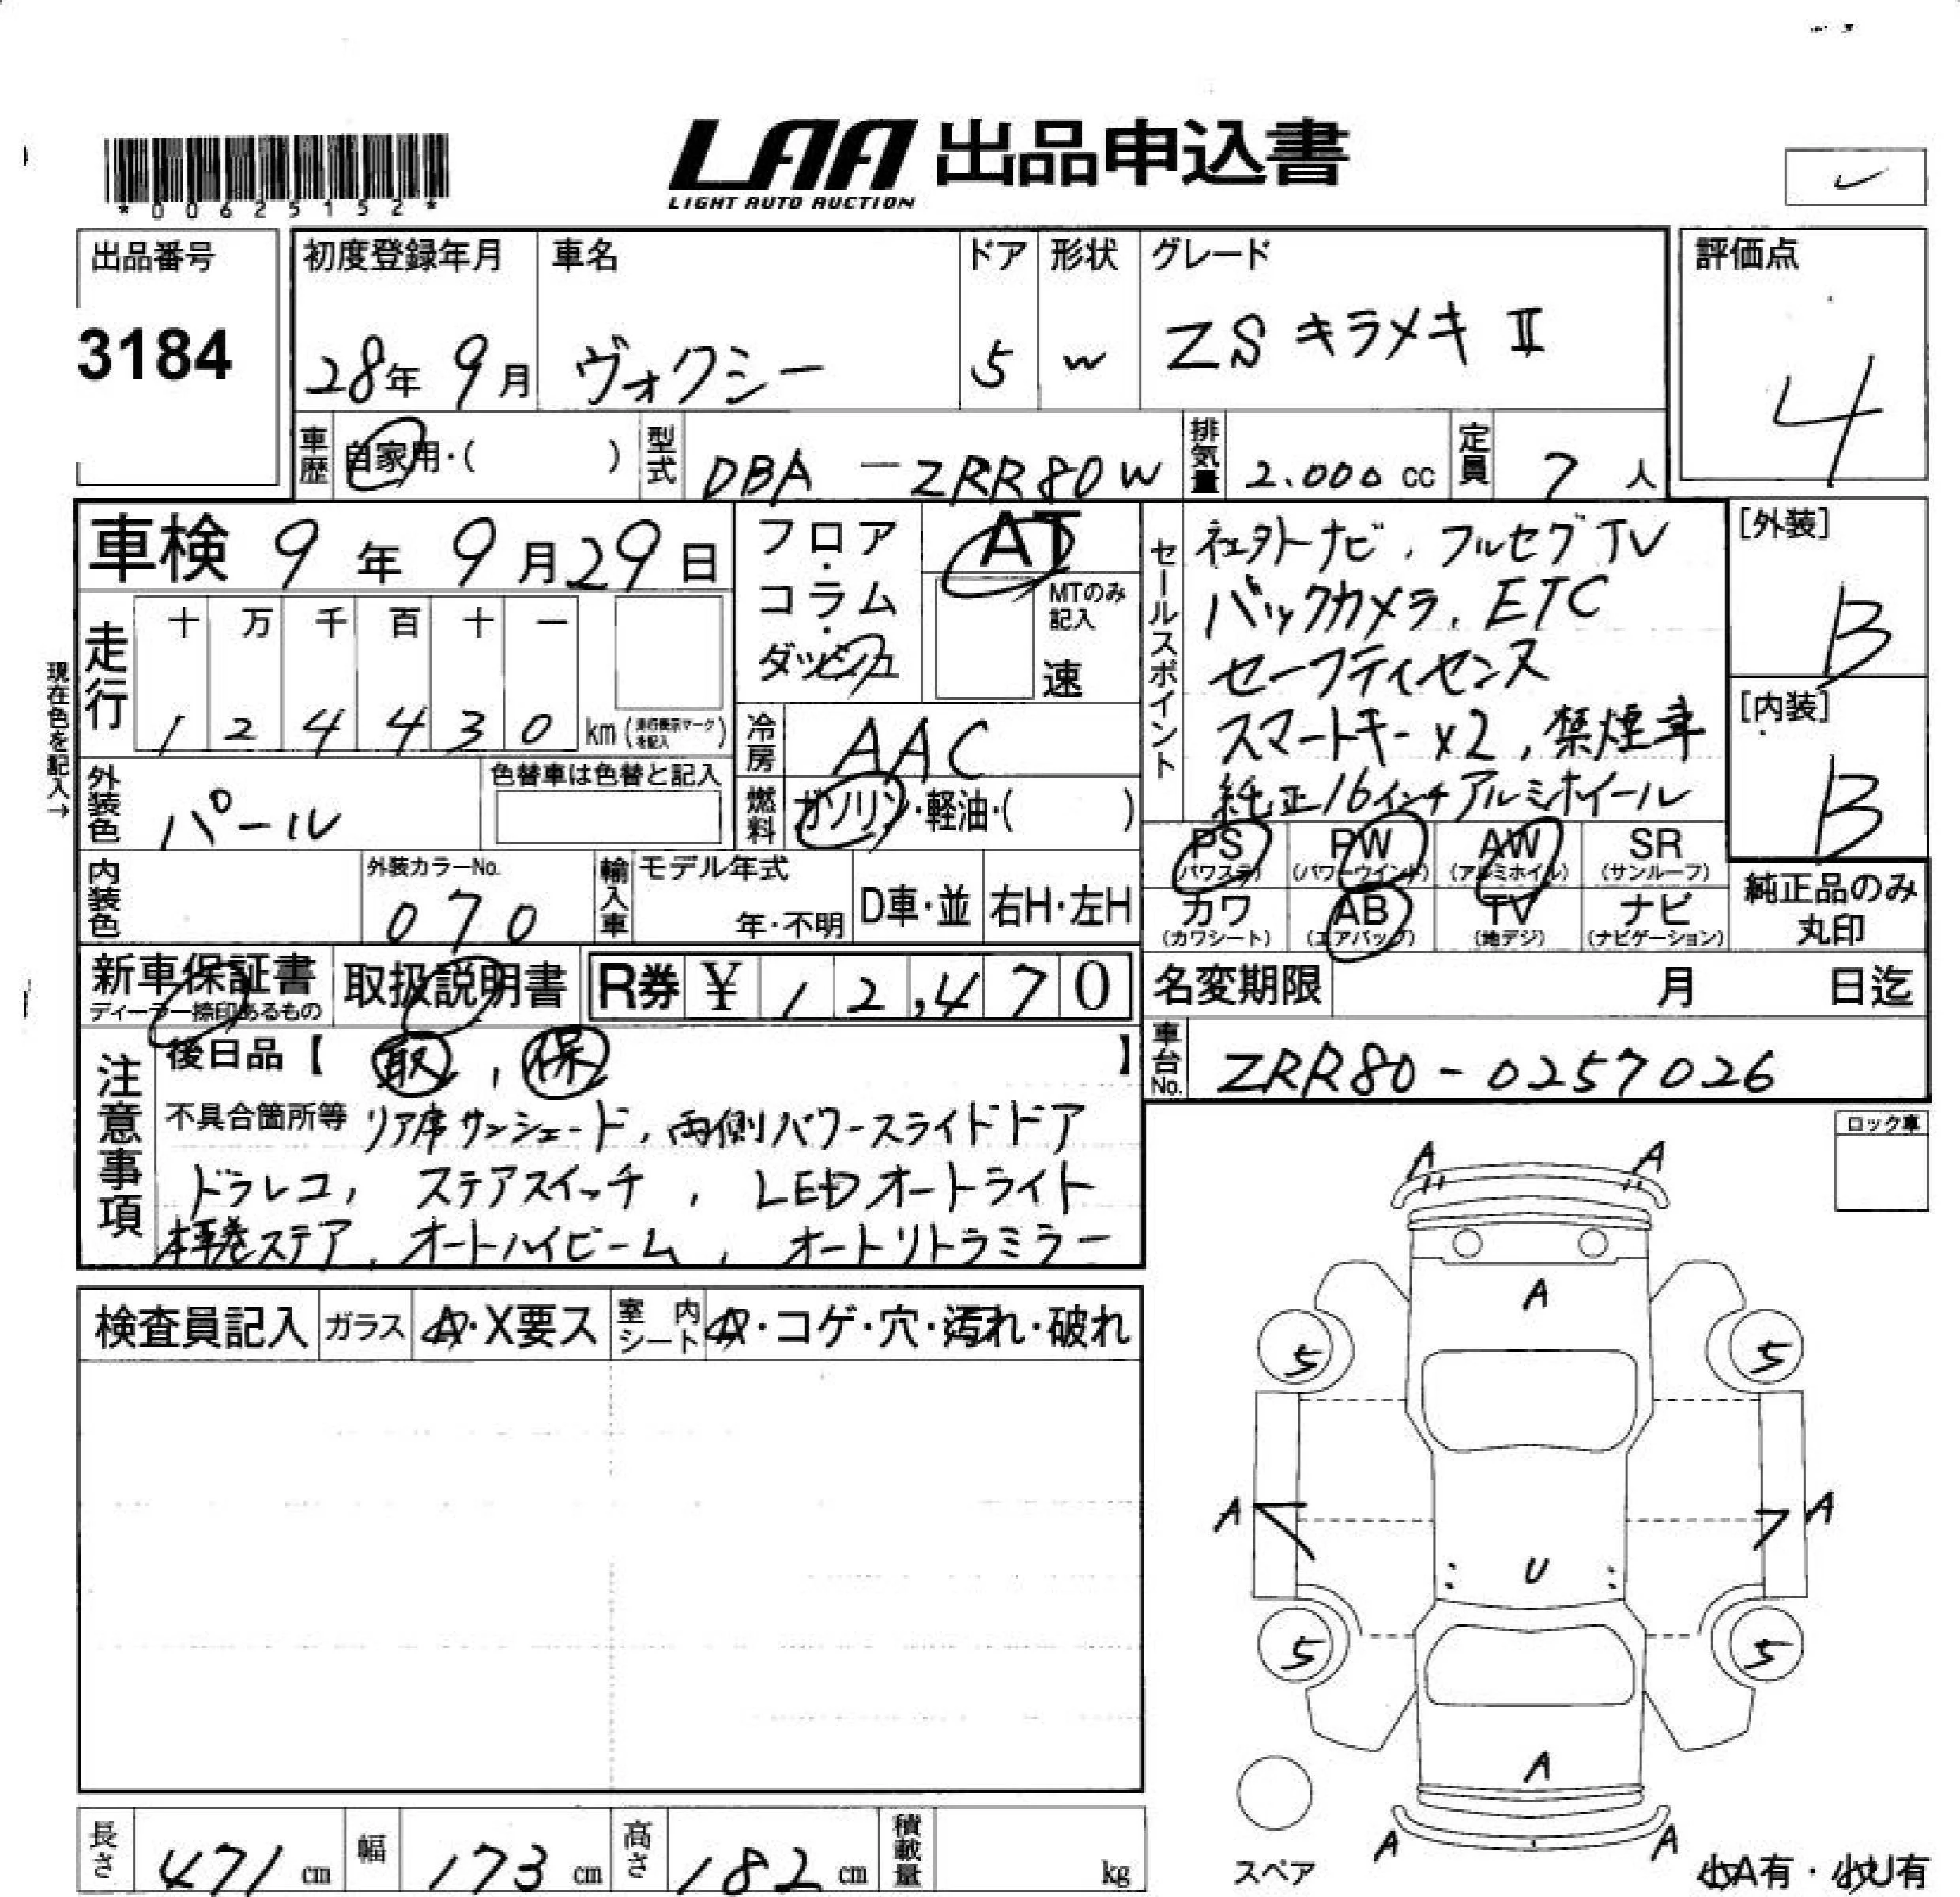 LAA 出品申込書
LIGHT AUTO AUCTION
*00625152*
出品番号
3184
初度登録年月
28年 9月
車名
ヴォクシー
ドア
5
形状
W
グレード
ZS キラメキ II
評価点
4
車歴 自家用・( )
型式 DBA-ZRR80W
排気量 2.000 cc
定員 7 人
車検 9年 9月 29日
現在色を記入→
走行 十 万 千 百 十 一
1 2 4 4 3 0 km (走行表示マークを記入)
フロア・コラム・ダッシュ
AT
MTのみ記入
速
冷房 AAC
燃料 ガソリン・軽油・( )
外装色 パール
色替車は色替と記入
内装色
外装カラーNo.
070
輸入車 モデル年式
年・不明
D車・並
右H・左H
セールスポイント
社外ナビ、フルセグTV
バックカメラ、ETC
セーフティセンス
スマートキー×2、禁煙車
純正16インチアルミホイール
[外装]
B
[内装]
B
PS (パワステ) PW (パワーウインド) AW (アルミホイル) SR (サンルーフ)
カワ (カワシート) AB (エアバッグ) TV (地デジ) ナビ (ナビゲーション)
純正品のみ
丸印
新車保証書
ディーラー捺印あるもの
取扱説明書
R券 ¥ 12,470
名変期限 月 日迄
車台No. ZRR80-0257026
注意事項
後日品【 取 , 保 】
不具合箇所等 リア席サンシェード、両側パワースライドドア
ドラレコ、ステアスイッチ、LEDオートライト
本革巻ステア、オートハイビーム、オートリトラミラー
ロック車
検査員記入 ガラス A・X要ス 室内シート A・コゲ・穴・汚れ・破れ
A A
A
5 5
A A
U
5 5
A
A A
スペア
小A有・小U有
長さ 471 cm 幅 173 cm 高さ 182 cm 積載量 kg